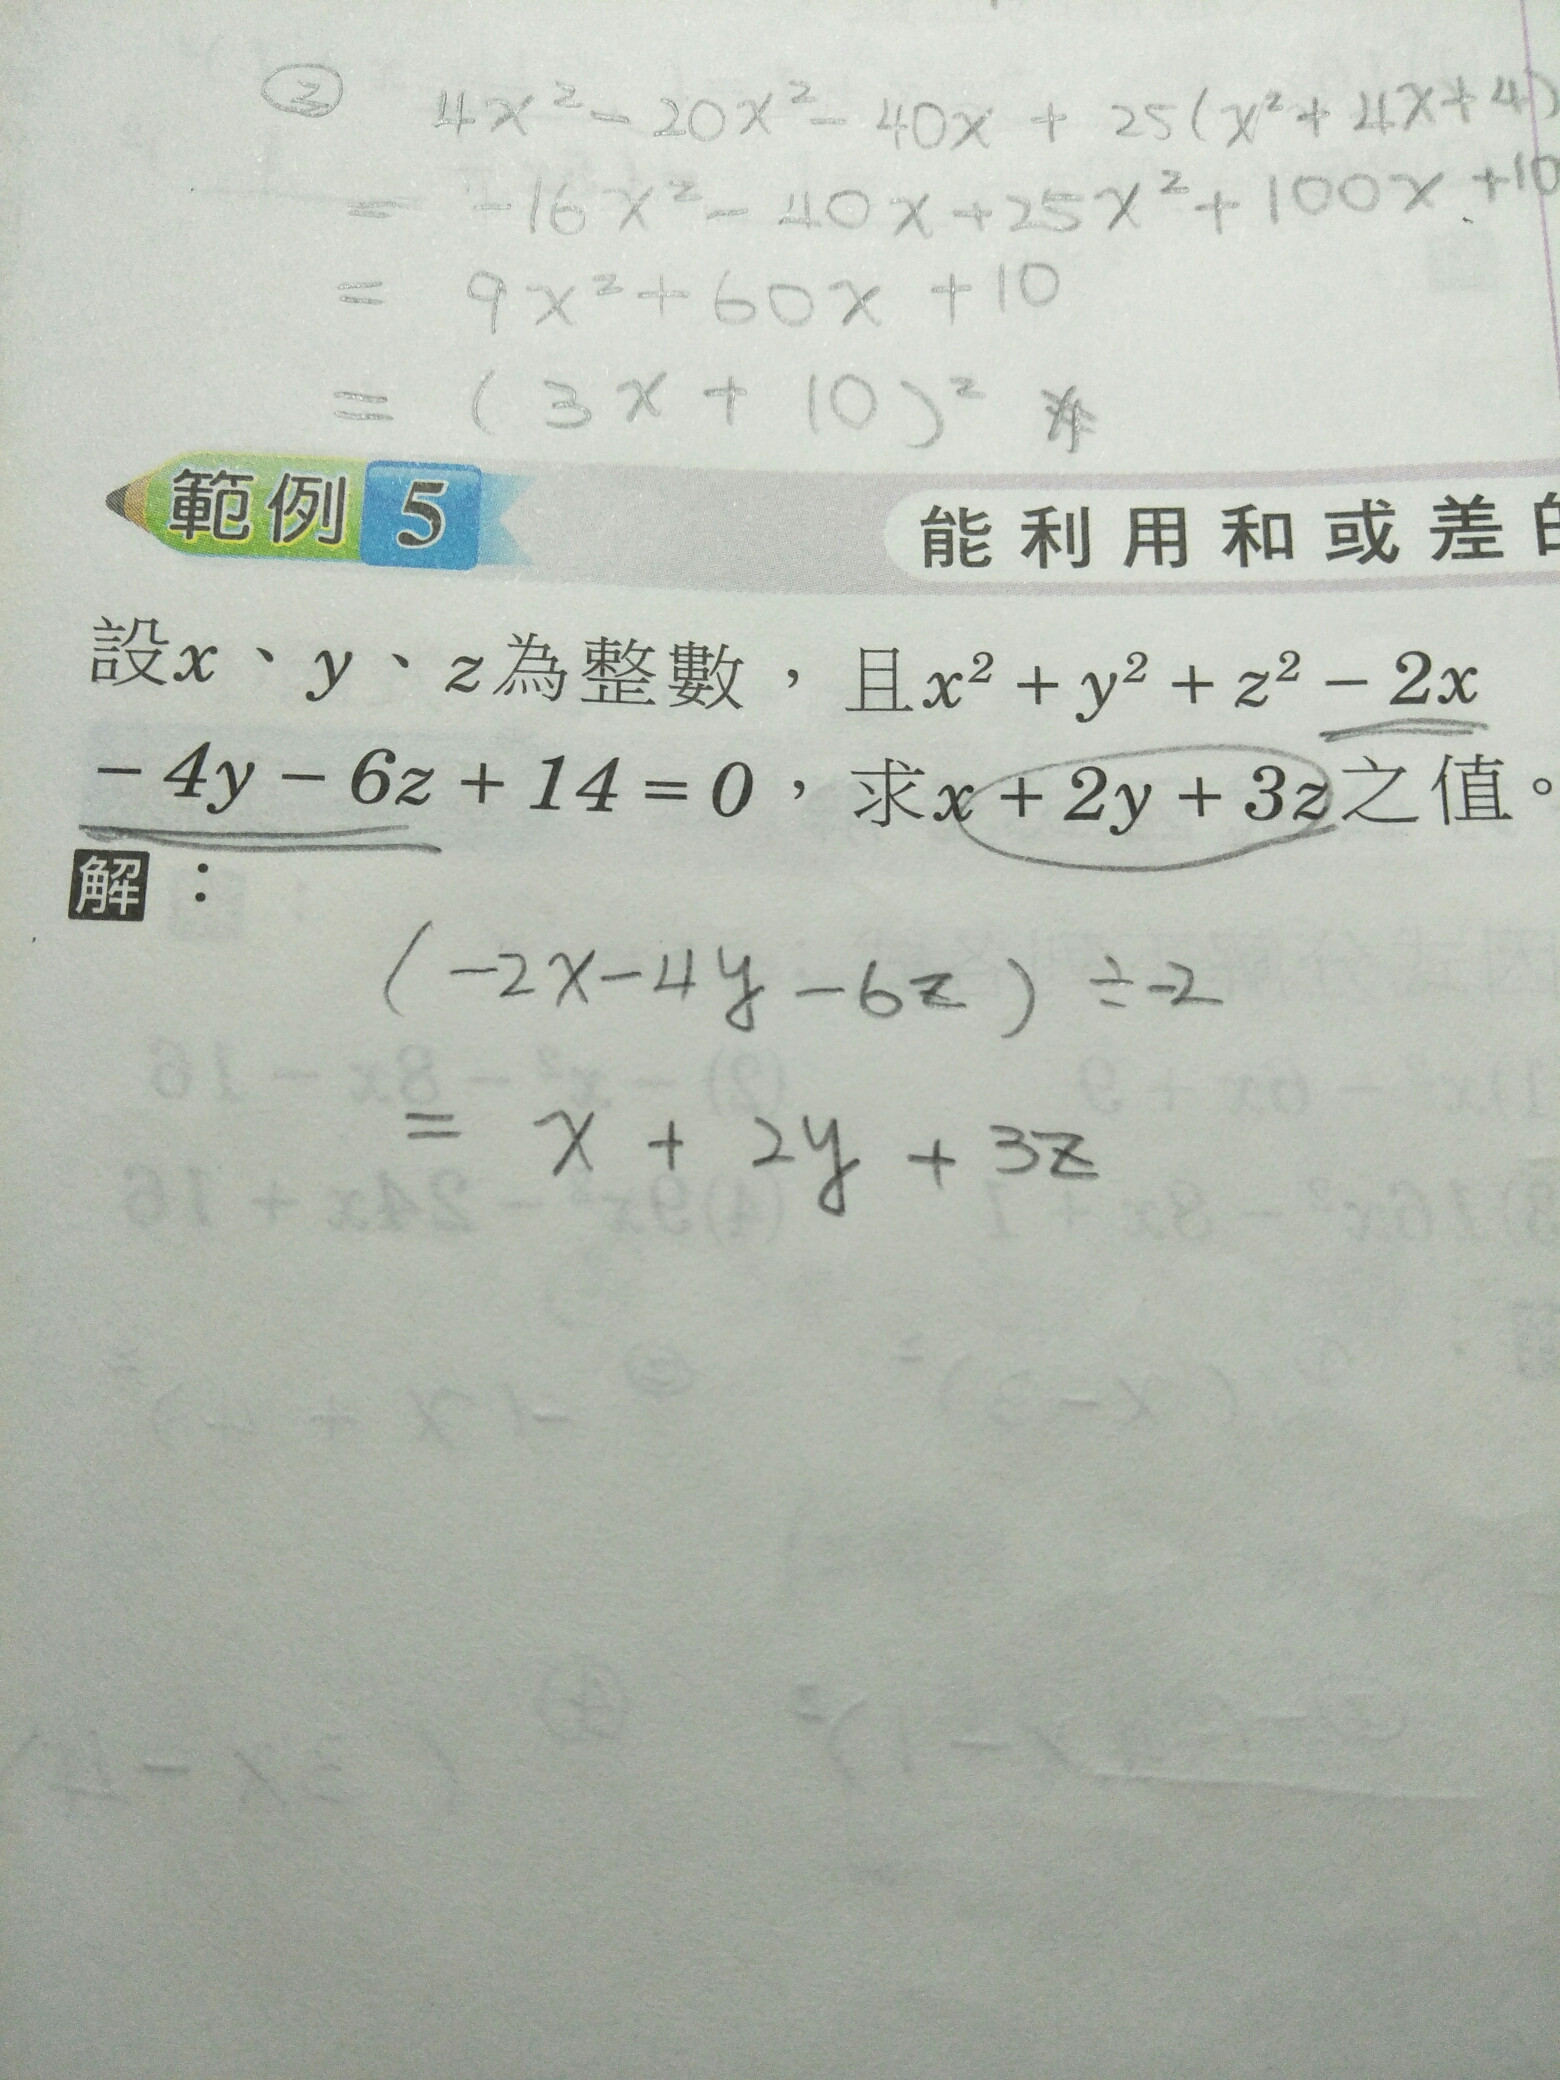 ② 4x² - 20x² - 40x + 25(x² + 4x + 4)
= -16x² - 40x + 25x² + 100x + 10
= 9x² + 60x + 10
= (3x + 10)²
範例 5 能利用和或差的
設x、y、z為整數，且x² + y² + z² − 2x
− 4y − 6z + 14 = 0，求x + 2y + 3z之值。
解：
(-2x - 4y - 6z) ÷ -2
= x + 2y + 3z